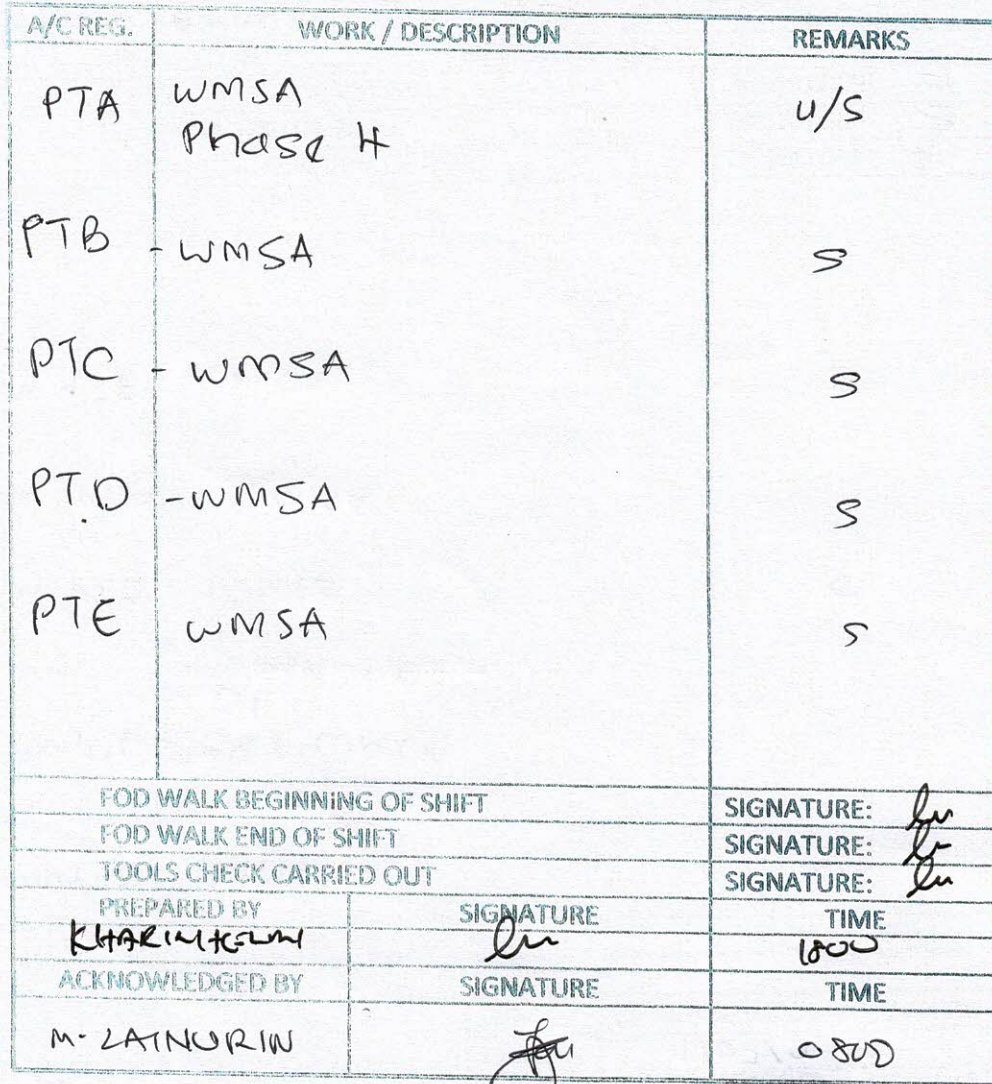 A/C REG. WORK / DESCRIPTION REMARKS
PTA WMSA u/s
Phase 4
PTB - WMSA S
PTC - WMSA S
PTD - WMSA S
PTE WMSA S
FOD WALK BEGINNING OF SHIFT SIGNATURE:
FOD WALK END OF SHIFT SIGNATURE:
TOOLS CHECK CARRIED OUT SIGNATURE:
PREPARED BY SIGNATURE TIME
1800
ACKNOWLEDGED BY SIGNATURE TIME
M. ZAINURIN 0800